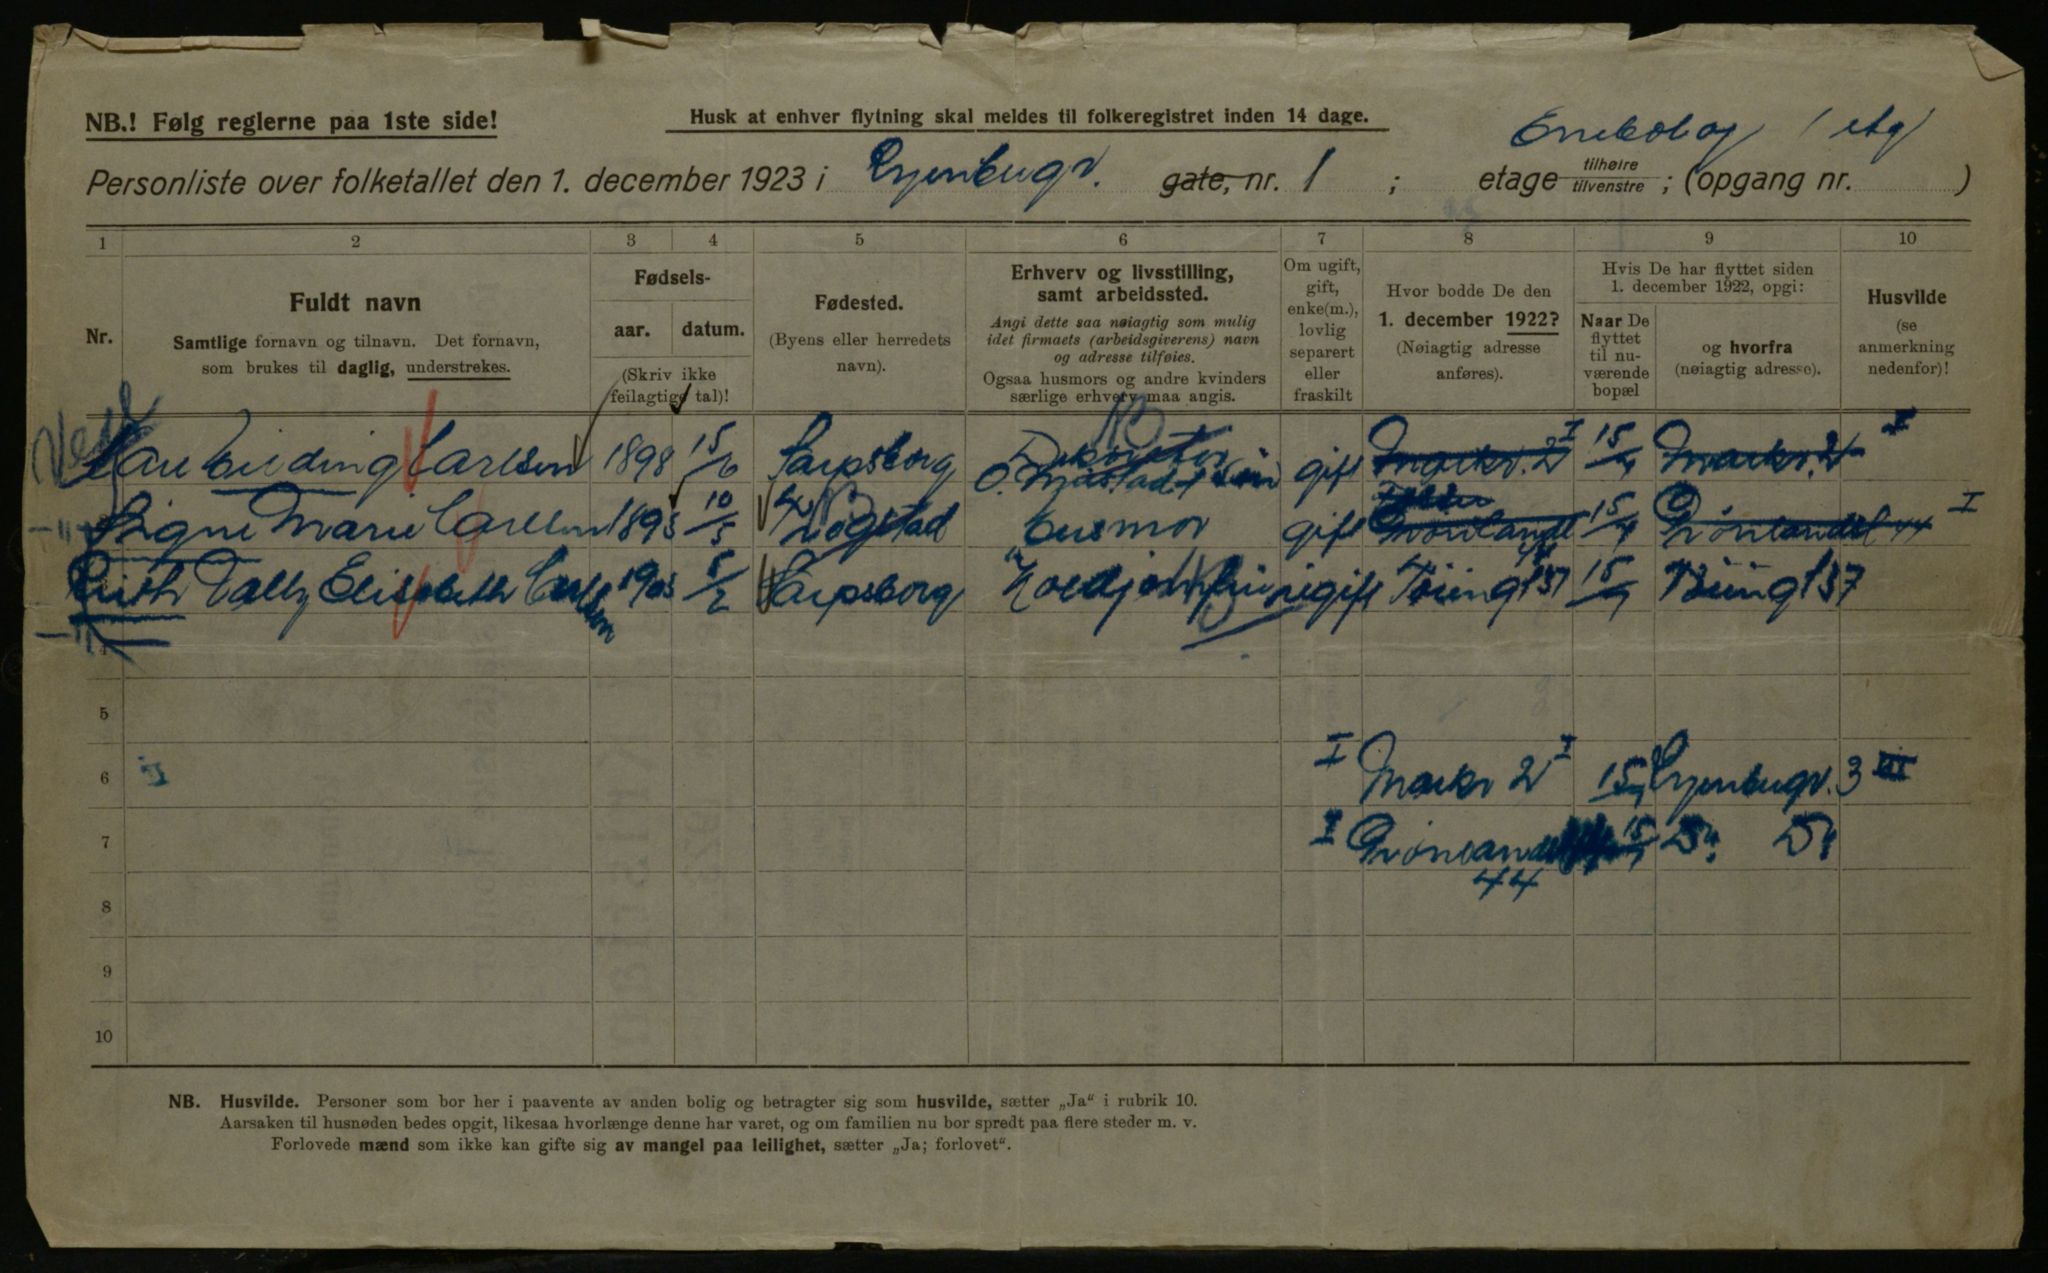 NB.! Følg reglerne paa 1ste side!
Husk at enhver flytning skal meldes til folkeregistret inden 14 dage.
1 etg
Personliste over folketallet den 1. december 1923 i Ryenbergv. gate, nr. 1 ; etage tilhøire tilvenstre ; (opgang nr. )
1 2 3 4 5 6 7 8 9 10
Nr.
Fuldt navn
Samtlige fornavn og tilnavn. Det fornavn,
som brukes til daglig, understrekes.
Fødsels-
aar. datum.
(Skriv ikke
feilagtige tal)!
Fødested.
(Byens eller herredets
navn).
Erhverv og livsstilling,
samt arbeidssted.
Angi dette saa nøiagtig som mulig
idet firmaets (arbeidsgiverens) navn
og adresse tilføies.
Ogsaa husmors og andre kvinders
særlige erhverv maa angis.
Om ugift,
gift,
enke(m.),
lovlig
separert
eller
fraskilt
Hvor bodde De den
1. december 1922?
(Nøiagtig adresse
anføres).
Hvis De har flyttet siden
1. december 1922, opgi:
Naar De
flyttet
til nu-
værende
bopæl
og hvorfra
(nøiagtig adresse).
Husvilde
(se
anmerkning
nedenfor)!
Carlsen 1898 15/6 Sarpsborg gift Markv. 2 I 15/4 Markv. 2 I
Signe Marie Carlsen 1893 10/5 husmor gift Grønlandsl 15/4 Grønlandsl 44 I
Ruth Vally Elisabeth Carlsen 1905 5/2 Sarpsborg ugift Tøiengt 37 15/9 Tøiengt 37
4
5
6 I Markv 2 I 15/4 Ryenbergv. 3 III
7 I Grønlandsl 15/4 Do Do
44
8
9
10
NB. Husvilde. Personer som bor her i paavente av anden bolig og betragter sig som husvilde, sætter „Ja“ i rubrik 10.
Aarsaken til husnøden bedes opgit, likesaa hvorlænge denne har varet, og om familien nu bor spredt paa flere steder m. v.
Forlovede mænd som ikke kan gifte sig av mangel paa leilighet, sætter „Ja; forlovet“.